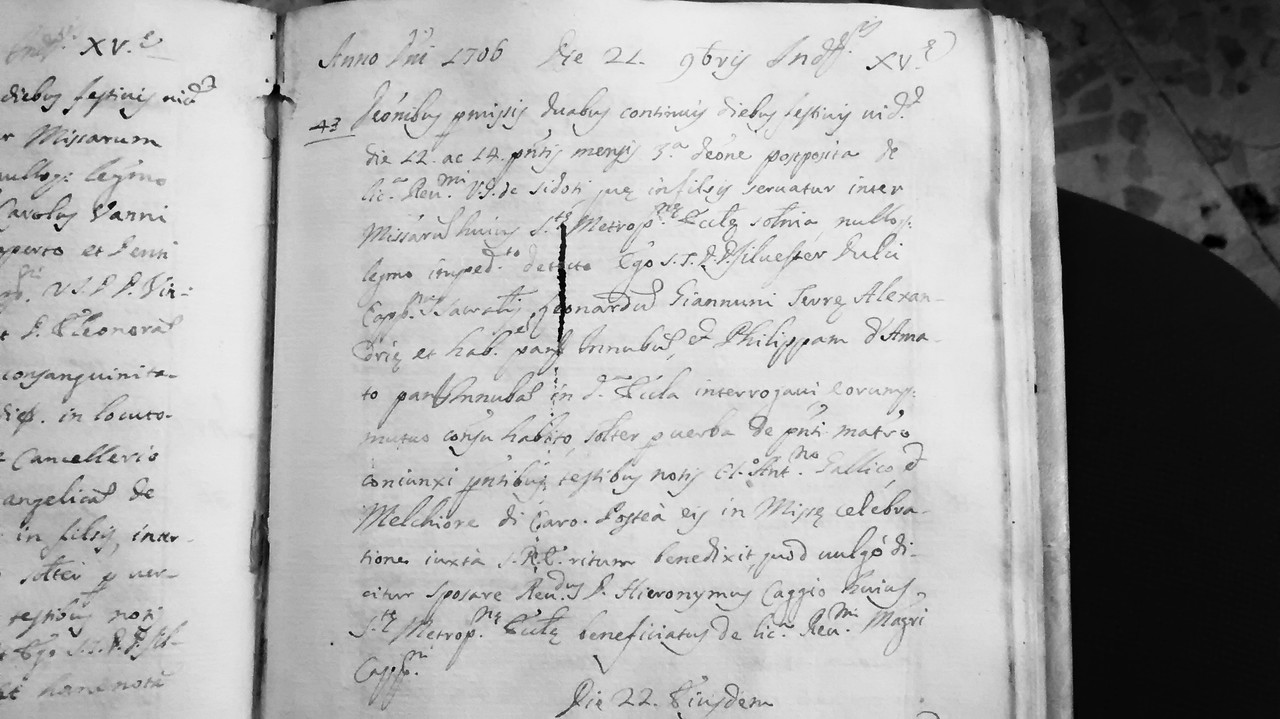 XV.e
diebus festivis vid.t
r Missarum
nullog: legmo
Carolus Vanni
aperto et Denti
V.I.D. D. Vin:
et D. Eleonera
consanguinita-
disp. in locuto-
Cancellerio
angelica de
in filsis, inter-
solter p ver-
testibus noti
Ego S.T.D. D. Sil-
et hanc nota
Anno Dni 1706 Die 21. 9bris Indis. XV.e
43 Deonibus pmissis duabus continuis diebus festivis vid.t
die 12. ac 14. pntis mensis 3.a deone postposita de
lic.a Reu.mi V.G. de Sidoti que in filsis servatur inter
Missaru huius S.te Metrop.ne Eccle solnia, nullog:
legmo imped.to detecto Ego S.T.D. D. Silvester Dulci
Capp.nus Sacralis Leonardu Giannuni Terre Alexan-
drie et hab.e panh Innubu, et Philippam d'Ama-
to panh Innuba in d.a Eccla interrogavi eorumq:
mutuo consu habito, solter p verba de pnti matro
coniunxi pntibus testibus notis Cl. Ant.no Gallico, et
Melchiore di Caro. Postea eis in Misse celebra-
tione iuxta S.R.E. ritum benedixit, quod vulgo di-
citur sposare Reu.dus S. D. Hieronymus Caggio huius
S.te Metrop.ne Eccle beneficiatus de lic.a Reu.mi Magri
Capp.ni
Die 22. Eiusdem